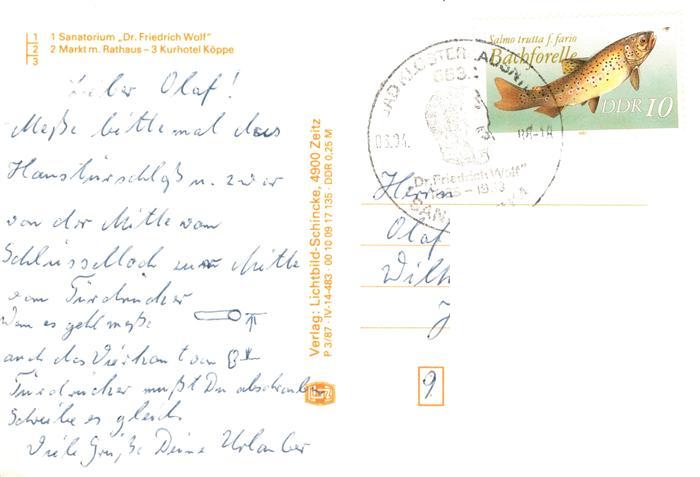 1 1 Sanatorium „Dr. Friedrich Wolf"
2 2 Markt m. Rathaus – 3 Kurhotel Köppe
3
Lieber Olaf!
Meße bitte mal das
Haustürschloß u. zwar
von der Mitte vom
Schlüsselloch zur Mitte
vom Türdrücker
Wenn es geht meße
auch das Vierkant vom
Türdrücker mußt Du abschrauben
Schreibe es gleich.
Viele Grüße Deine Urlauber
Verlag: Lichtbild-Schincke, 4900 Zeitz
P 3/87 · IV-14-483 · 00 10 09 17 135 · DDR 0,25 M
Salmo trutta f. fario
Bachforelle
DDR 10
BAD KLOSTERLAUSNITZ
„Dr. Friedrich Wolf"
Herrn
Olaf
Wilh
9